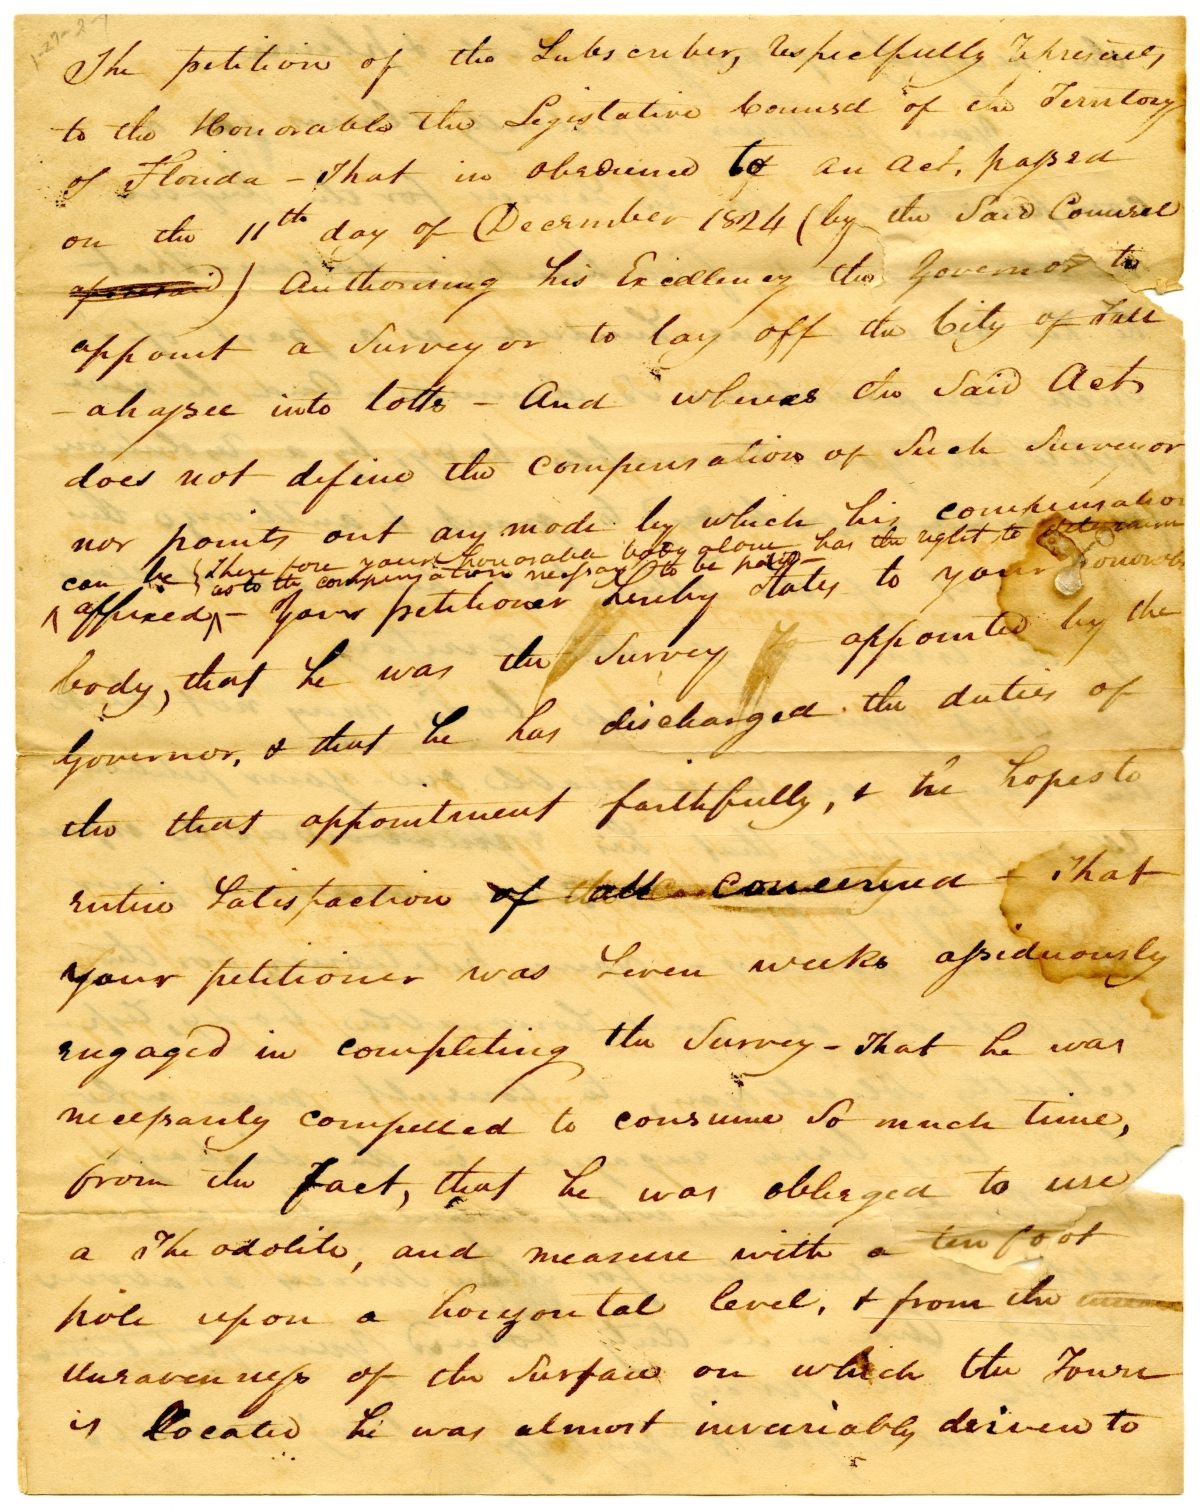 1-27-2-7
The petition of the Subscriber, respectfully represents,
to the Honorable the Legislative Counsel of the Territory
of Florida – That in obedience to an act, passed
on the 11th day of December 1824 (by the Said Counsel
aforesaid) Authorising his Excellency the Governor to
appoint a Surveyor to lay off the City of Tall
-ahassee into lotts – And whereas the Said Act
does not define the compensation of Such Surveyor
nor points out any mode by which his compensation
can be { Therefore your honorable body alone has the right to determine
as to the compensation necessary to be paid –
affixed, – Your petitioner hereby states to your honorable
body, that he was the Surveyor appointed by the
Governor, & that he has discharged the duties of
the that appointment faithfully, & he hopes to
entire Satisfaction of all concerned – That
your petitioner was Seven weeks assiduously
engaged in completing the Survey – That he was
necessarily compelled to consume So much time,
from the fact, that he was obbleged to use
a Theodolite, and measure with a ten foot
pole upon a horizontal level, & from the
unevenness of the Surface on which the Town
is located he was almost invariably driven to